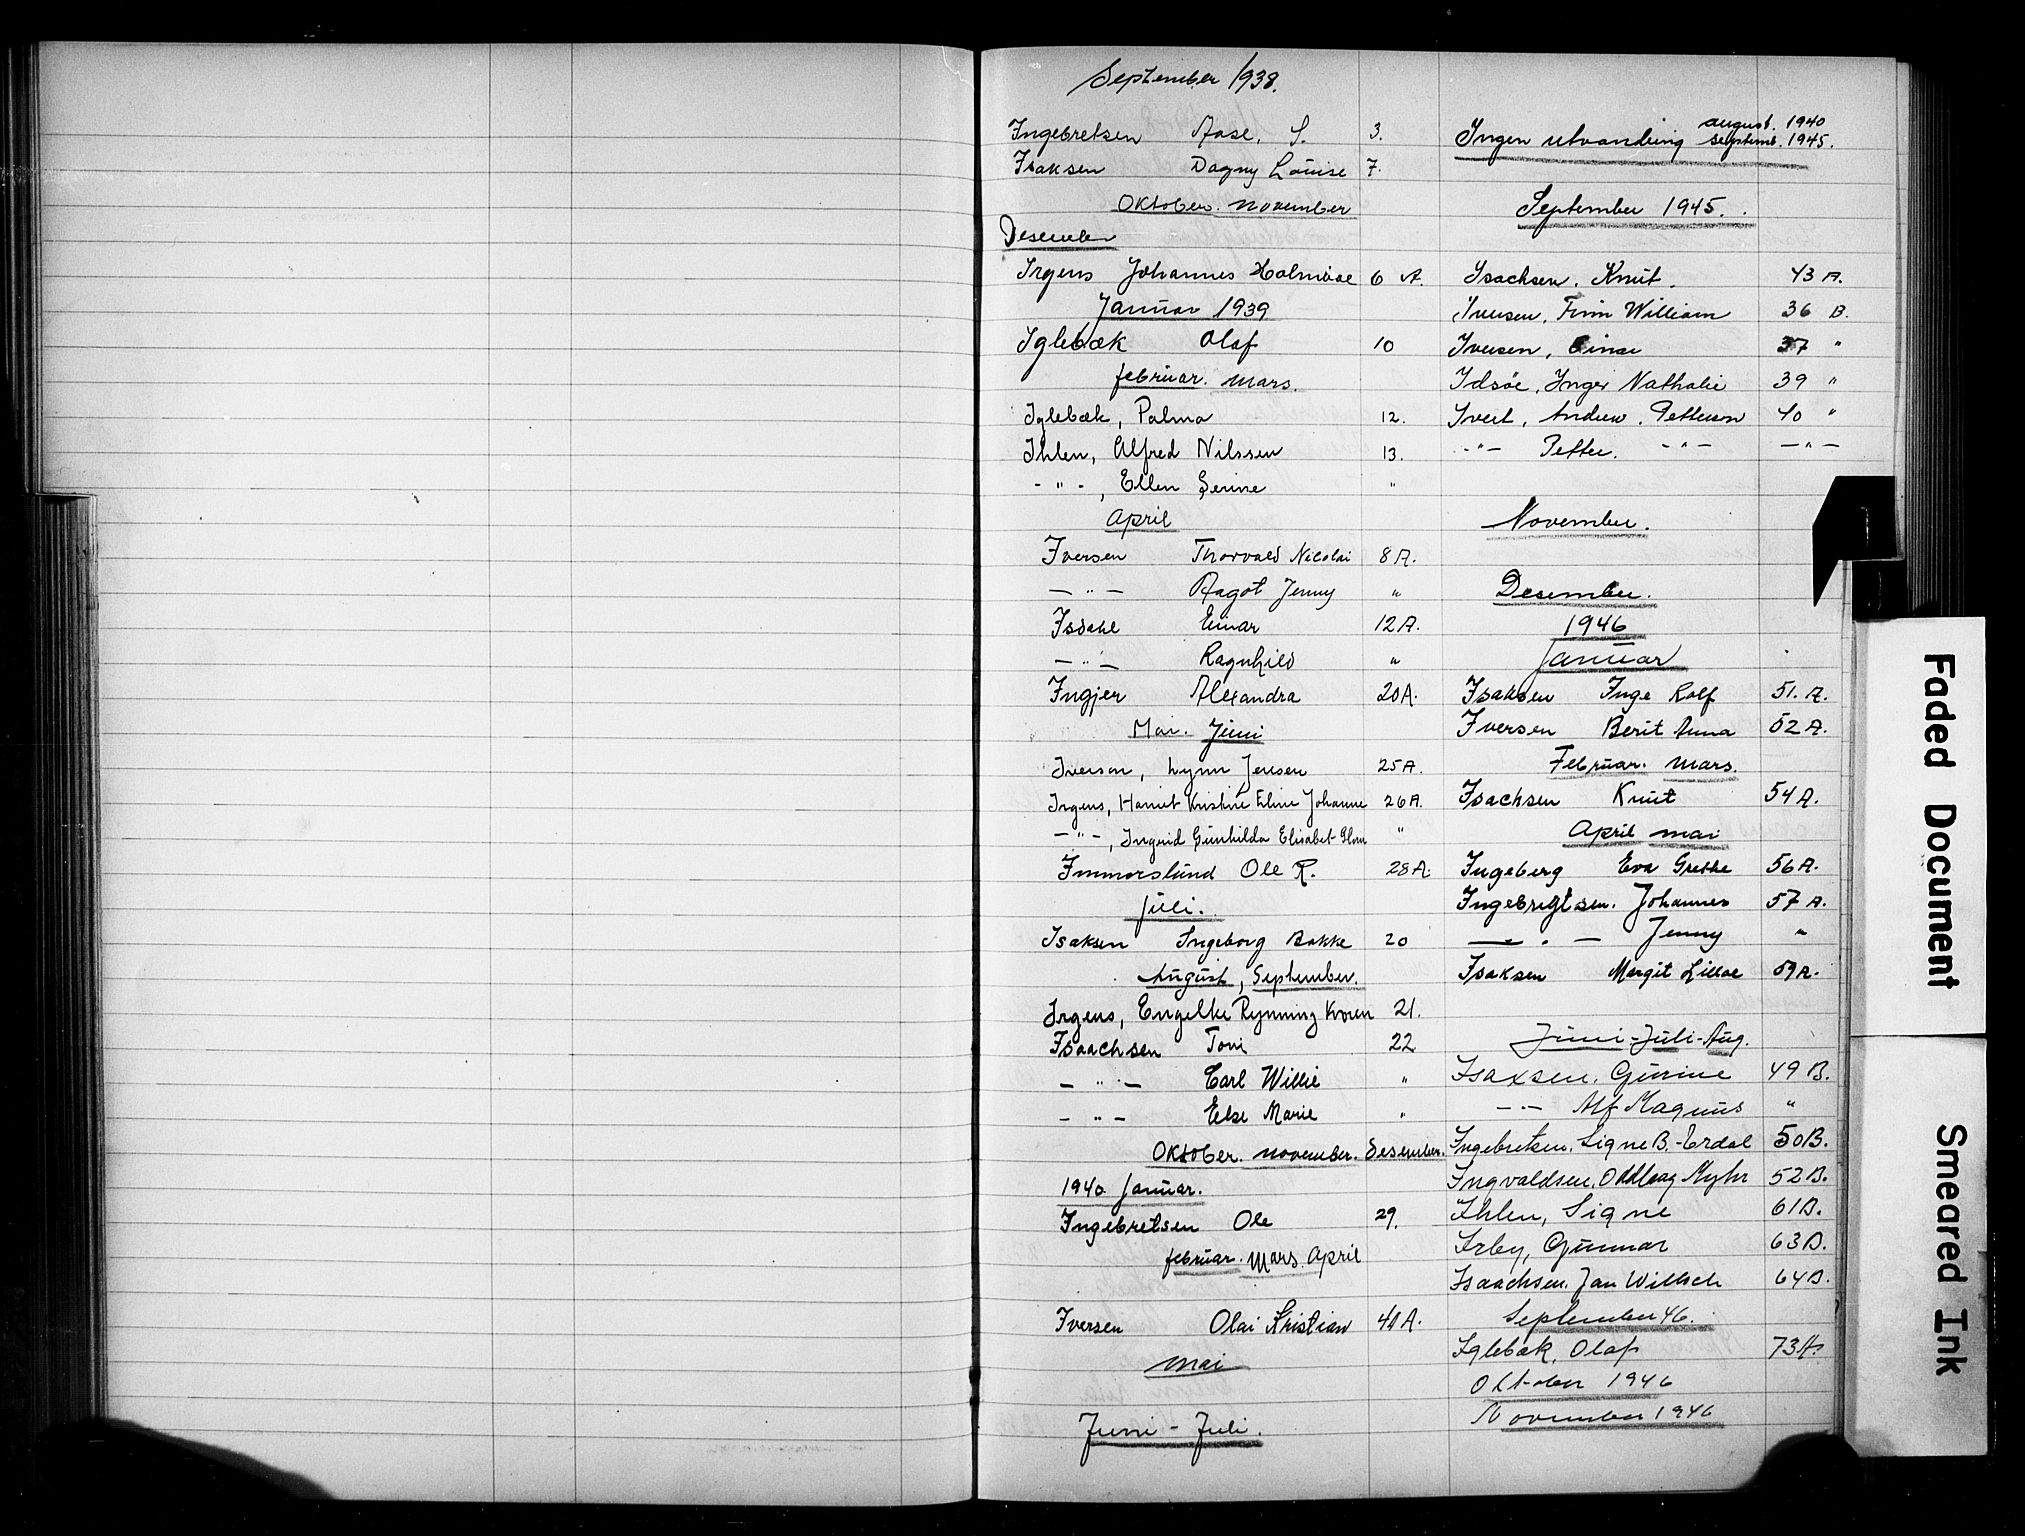 September 1938.
Ingebretsen Aase, S. 3.
Isaksen Dagny Louise 7.
Oktober. november
Desember
Irgens Johannes 6 A.
Januar 1939
Iglebæk Olaf 10
februar. mars.
Iglebæk, Palma 12.
Ihlen, Alfred Nilssen 13.
- " - , Ellen Serine "
April
Iversen Thorvald Nicolai 8 A.
— " — Ragot Jenny "
Isdahl Einar 12 A.
— " — Ragnhild "
Ingjer Alexandra 20 A.
Mai. Juni
Iverson, Lynn Jensen 25 A.
Irgens, Harriet Kristine Eline Johanne 26 A.
— " — , Ingrid Gunhilda Elisabet "
Immerslund Ole R. 28 A.
Juli.
Isaksen Ingeborg Bakke 20
August, September.
Irgens, Engelke Rynning Koren 21.
Isaachsen Toni 22
— " — Carl Willie "
— " — Else Marie "
Oktober. november. Desember.
1940 Januar.
Ingebretsen Ole 29.
februar. Mars. April
Iversen Olai Kristian 41 A.
mai
Juni - Juli.
august. 1940
Ingen utvandring septemb. 1945.
September 1945.
Isachsen. Knut. 43 A.
Iversen. Finn William 36 B.
Iversen, Einar 37 "
Idsøe, Inger Nathalie 39 "
Ivert, Andrew. Petterson 40 "
- " - Petter. - " - — " —
November.
Desember.
1946
Januar
Isaksen Inge Rolf 51. A.
Iversen Berit Anna 52 A.
Februar. mars.
Isachsen Knut 54 A.
April mai
Ingeberg Eva Grethe 56 A.
Ingebrigtsen. Johannes 57 A.
— " — Jenny "
Isaksen Margit Lilloe 59 A.
Juni-Juli-Aug.
Isaxsen. Gurine 49 B.
— " — Alf Magnus "
Ingebretsen. Signe B.-Erdal 50 B.
Ingvaldsen. Oddlaug Myhr 52 B.
Ihlen, Signe 61 B.
Irby, Gunnar 63 B.
Isaachsen. Jan Willoch 64 B.
September 46.
Iglebæk, Olaf 73 A.
Oktober 1946
November 1946
Faded Document
Smeared Ink